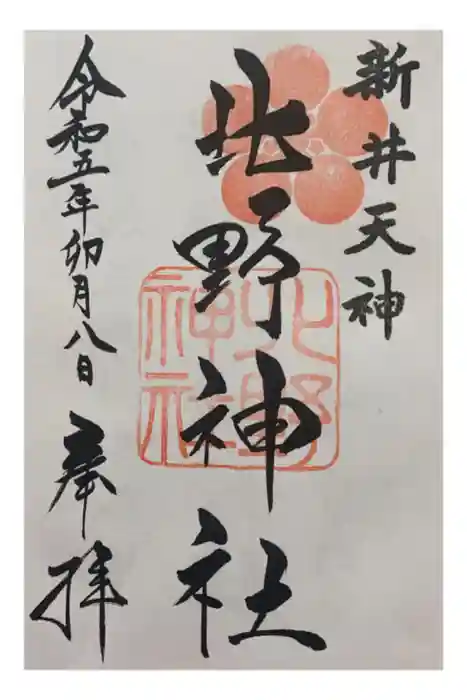 新井天神
北野神社
北野神社
令和五年卯月八日
奉拝